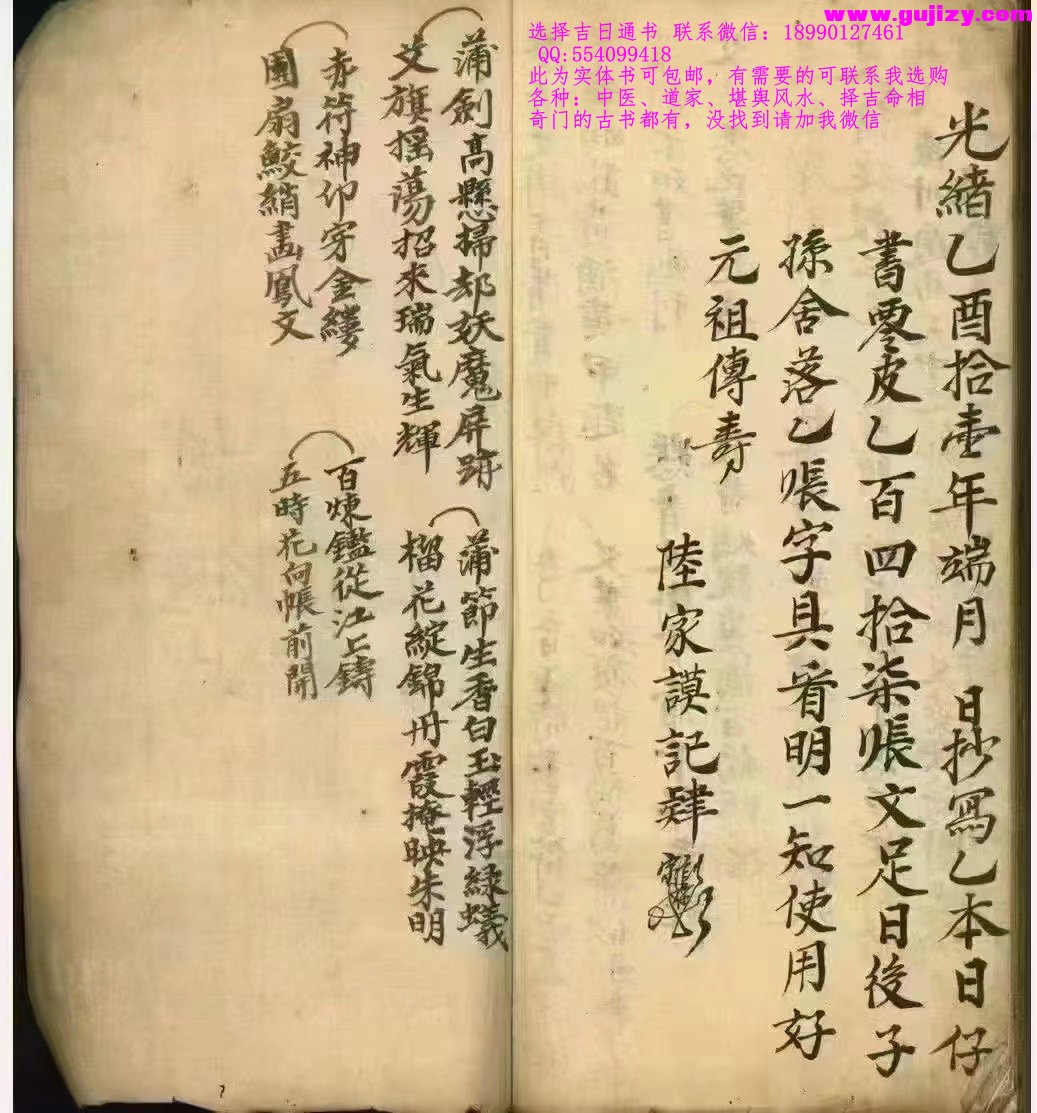 www.gujizy.com
选择吉日通书 联系微信：18990127461
QQ:554099418
此为实体书可包邮，有需要的可联系我选购
各种：中医、道家、堪舆风水、择吉命相
奇门的古书都有，没找到请加我微信
光緒乙酉拾壹年端月 日抄寫乙本日仔
書零皮乙百四拾柒賬文足日後子
孫舍落乙賬字具看明一知使用好
元祖傳壽
陸家謨記肆
蒲劍高懸掃却妖魔屏跡
艾旗搖蕩招來瑞氣生輝
赤符神印穿金縷
團扇鮫綃畵鳳文
蒲節生香白玉輕浮綠蟻
榴花綻錦丹霞掩映朱明
百煉鑑從江上鑄
五時花向帳前開